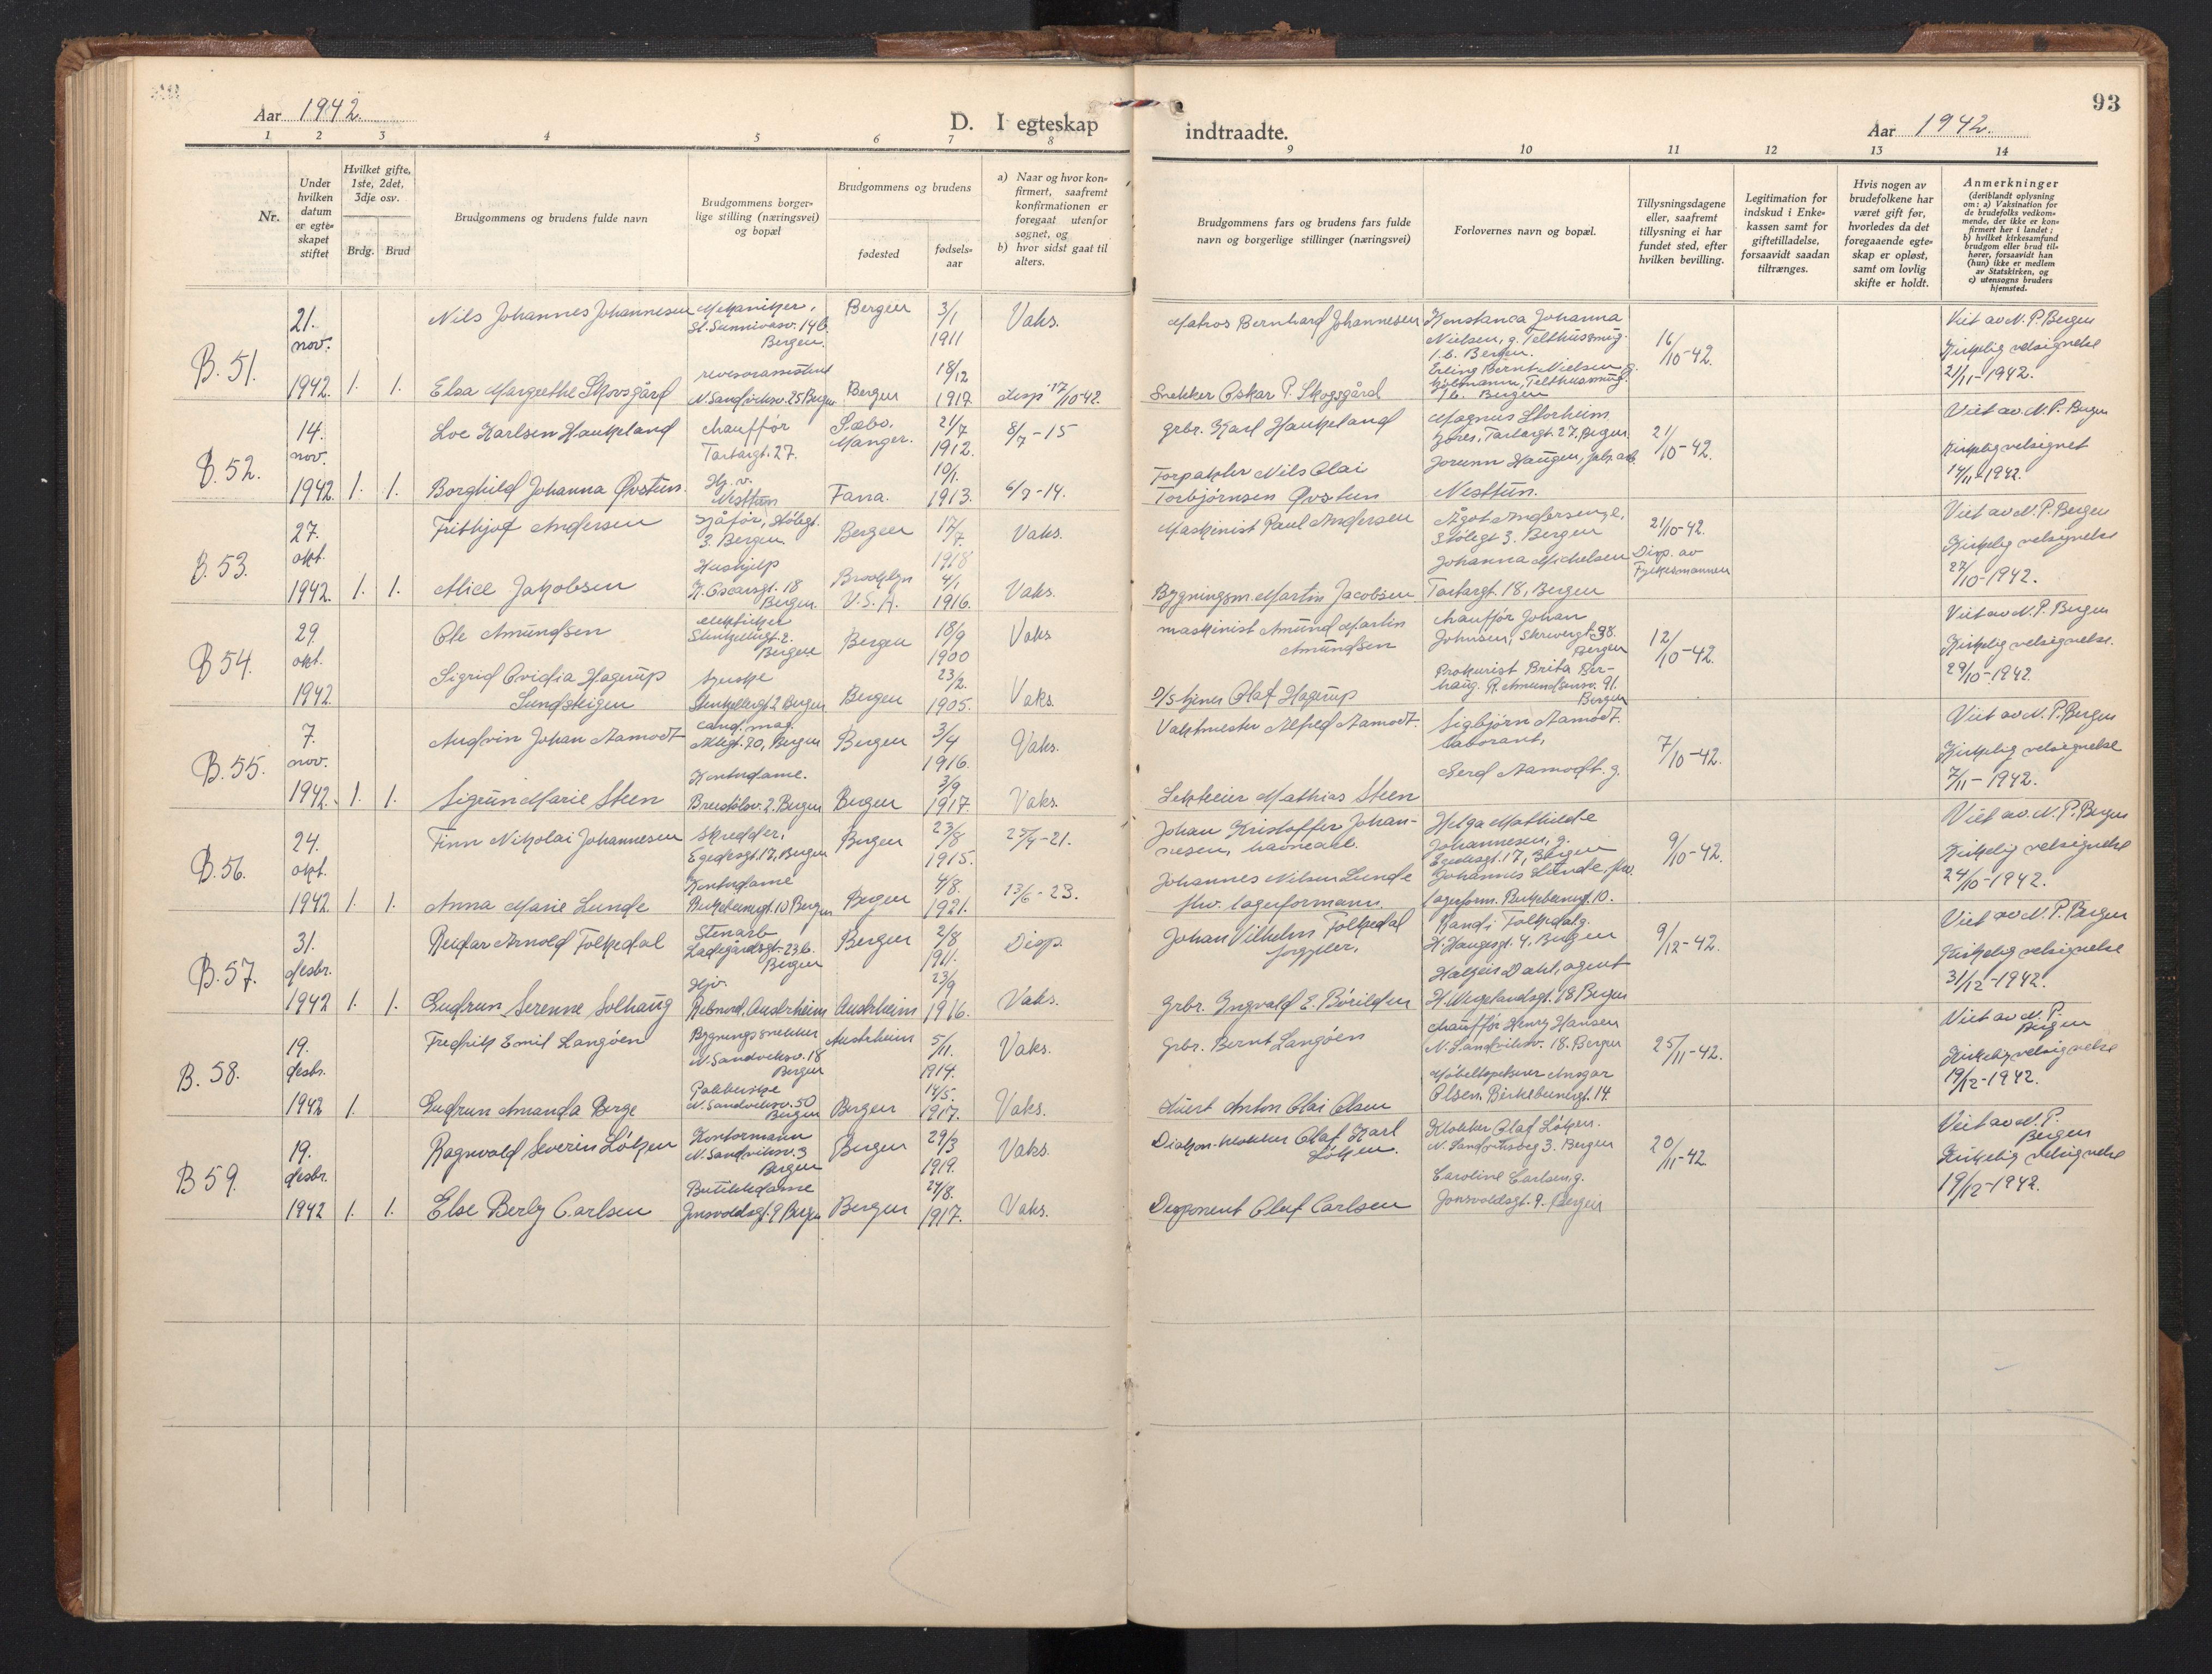 93
Aar 1942. D. I egteskap indtraadte. Aar 1942.
1 2 3 4 5 6 7 8 9 10 11 12 13 14
Nr.
Under hvilken datum er egteskapet stiftet
Hvilket gifte, 1ste, 2det, 3dje osv.
Brdg. Brud
Brudgommens og brudens fulde navn
Brudgommens borgerlige stilling (næringsvei) og bopæl
Brudgommens og brudens
fødested
fødselsaar
a) Naar og hvor konfirmert, saafremt konfirmationen er foregaat utenfor sognet, og
b) hvor sidst gaat til alters.
Brudgommens fars og brudens fars fulde navn og borgerlige stillinger (næringsvei)
Forlovernes navn og bopæl.
Tillysningsdagene eller, saafremt tillysning ei har fundet sted, efter hvilken bevilling.
Legitimation for indskud i Enkekassen samt for giftetilladelse, forsaavidt saadan tiltrænges.
Hvis nogen av brudefolkene har været gift før, hvorledes da det foregaaende egteskap er opløst, samt om lovlig skifte er holdt.
Anmerkninger
(deriblandt oplysning om: a) Vaksination for de brudefolks vedkommende, der ikke er konfirmert her i landet; b) hvilket kirkesamfund brudgom eller brud tilhører, forsaavidt han (hun) ikke er medlem av Statskirken, og c) utensogns bruders hjemsted.
B. 51. 21. nov. 1942. 1. 1.
Nils Johannes Johannesen Mekaniker, St. Sunnivasv. 14b. Bergen. Bergen 3/1 1911 Vaks.
Matros Bernhard Johannesen
Konstanca Johanna Nielsen, g. Telthussmug. 1.b. Bergen.
16/10-42.
Viet av N. P. Bergen
Kirkelig velsignelse
21/11-1942.
Elsa Margrethe Skovsgård revisorassistent N. Sandviksv. 25 Bergen Bergen 18/12 1917. disp 17/10-42.
Snekker Oskar P. Skogsgård
Erling Bernt Nielsen Telthussmug. 1b. Bergen
B. 52. 14. nov. 1942 1. 1.
Loe Karlsen Haukeland chauffør Tartargt. 27. Sæbø, Manger. 21/7 1912. 8/7-15
grbr. Karl Haukeland
Magnus Storheim Tartargt. 27, Bergen.
21/10-42.
Viet av N. P. Bergen
Kirkelig velsignet
14/11-1942.
Borghild Johanna Øvstun. Hj. v. Nesttun Fana. 10/1. 1913. 6/7-14.
Torpakter Nils Olai Torbjørnsen Øvstun
Jorunn Haugen, Nesttun.
B. 53. 27. okt. 1942. 1. 1.
Frithjof Andersen Sjåfør, Stølegt. 3. Bergen. Bergen 17/7. 1918 Vaks.
Maskinist Paul Andersen
Ågot Andersen Stølegt 3. Bergen
21/10-42. Disp. av Fylkesmannen
Viet av N. P. Bergen
Kirkelig velsignelse
27/10-1942.
Alice Jakobsen Hushjelp K. Oscarsgt. 18 Bergen. Brooklyn U.S.A. 4/1 1916. Vaks.
Bygningsm. Martin Jacobsen
Johanna Michelsen Tartargt. 18, Bergen
B 54. 29. okt. 1942.
Ole Amundsen Bergen Bergen 18/9 1900 Vaks
maskinist Amund Martin Amundsen
chauffør Johan Johnsen, Skivergt. 38. Bergen
12/10-42.
Viet av N. P. Bergen
Kirkelig velsignelse.
29/10-1942.
Sigrid Ovidia Hagerup Sundsteigen Bergen Bergen 23/2. 1905. Vaks.
Olaf Hagerup
Prokurist Brita Berhaug. R. Amundsensv. 91. Bergen
B. 55. 7. nov. 1942. 1. 1.
Audvin Johan Aamodt cand. mag. Allégt. 20, Bergen Bergen 3/4 1916. Vaks.
Vaktmester Alfred Aamodt.
Sigbjørn Aamodt. laborant,
7/10-42.
Viet av N. P. Bergen
Kirkelig velsignelse
7/11-1942.
Sigrun Marie Steen Kontordame. Breistølsv. 2. Bergen Bergen 3/9 1917. Vaks.
Mathias Steen
Gerd Aamodt. g.
B. 56. 24. okt. 1942 1. 1.
Finn Nikolai Johannesen skredder, Egedesgt. 17, Bergen Bergen 23/8 1915. 25/9-21.
Johan Kristoffer Johannesen, havnearb.
Helga Mathilde Johannesen, g. Egedesgt. 17, Bergen
9/10-42.
Viet av N. P. Bergen
Kirkelig velsignelse
24/10-1942.
Anna Marie Lunde Kontordame Birkebeinergt. 10 Bergen Bergen 4/8. 1921. 13/6-23.
Johannes Nilsen Lunde lagerformann.
Johannes Lunde, lagerform. Birkebeinergt. 10.
B. 57. 31. desbr. 1942 1. 1.
Reidar Arnold Folkedal Stenarb Ladegårdsgt. 23b. Bergen Bergen 2/8 1911. Disp.
Johan Vilhelm Folkedal
Randi Folkedal g. H. Haugesgt. 4. Bergen
9/12-42.
Viet av N. P. Bergen
Kirkelig velsignelse
31/12-1942.
Gudrun Serenne Solhaug Hjv. Rebnord. Austrheim Austrheim 23/9 1916. Vaks.
Grbr. Ingvald E. Børilden
Halgeir Dahl, agent H. Wergelandsgt. 18 Bergen
B. 58. 19. desbr. 1942 1.
Fredrik Emil Langøen Bygningssnekker N. Sandviksv. 18 Bergen Austrheim 5/11. 1914. Vaks.
Grbr. Bernt Langøen
chauffør Henry Hansen N. Sandviksv. 18. Bergen
25/11-42.
Viet av N. P. Bergen
Kirkelig velsignelse
19/12-1942.
Gudrun Amanda Berge Pakkerske N. Sandviksv. 50 Bergen Bergen 14/5. 1917. Vaks.
Anton Olai Olsen
Møbeltapetserer Ansgar Olsen. Birkebeinergt. 14.
B 59. 19. desbr. 1942 1. 1.
Ragnvald Severin Løtzen Kontormann N. Sandviksv. 3 Bergen Bergen 29/3 1919. Vaks.
Diakon-klokker Olaf Karl Løtzen.
Klokker Olaf Løtzen. N. Sandviksveg 3. Bergen
20/11-42
Viet av N. P. Bergen
Kirkelig velsignelse
19/12-1942.
Else Berly Carlsen Butikkdame Jonsvoldsgt. 9 Bergen Bergen 24/8. 1917. Vaks.
Disponent Oluf Carlsen
Caroline Carlsen, g. Jonsvoldsgt. 9. Bergen